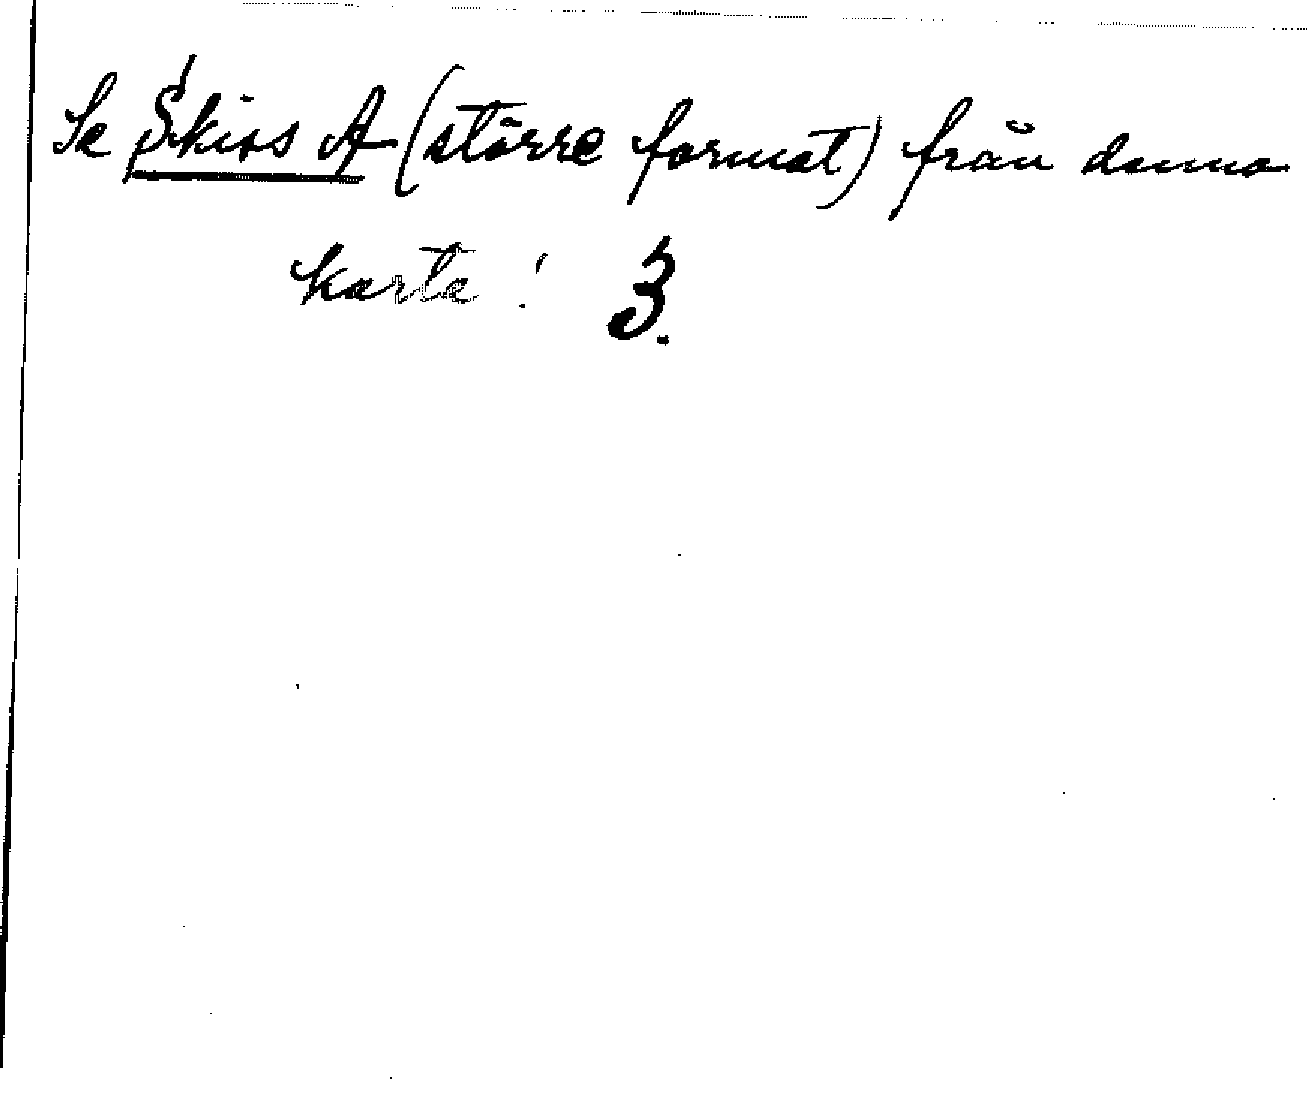 Se Skiss A (större format) från denna
karta! 3.